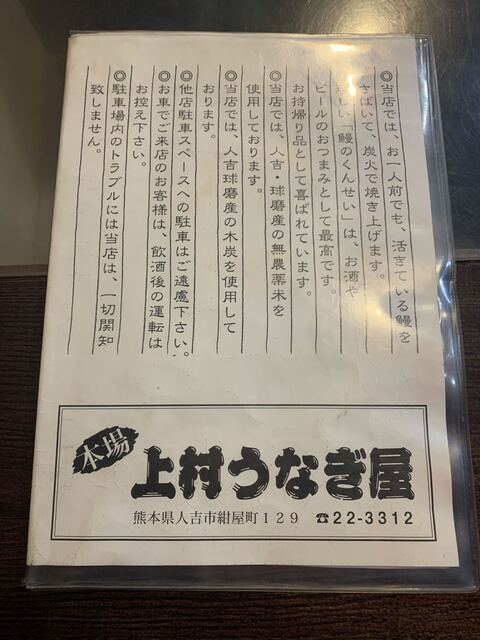 ◎当店では、お一人前でも、活きている鰻を
さばいて、炭火で焼き上げます。
しい「鰻のくんせい」は、お酒や
ビールのおつまみとして最高です。
お持帰り品として喜ばれています。
◎当店では、人吉・球磨産の無農薬米を
使用しております。
◎当店では、人吉球磨産の木炭を使用して
おります。
◎他店駐車スペースへの駐車はご遠慮下さい。
◎お車でご来店のお客様は、飲酒後の運転は
お控え下さい。
◎駐車場内のトラブルには当店は、一切関知
致しません。
本場
上村うなぎ屋
熊本県人吉市紺屋町129 ☎22-3312